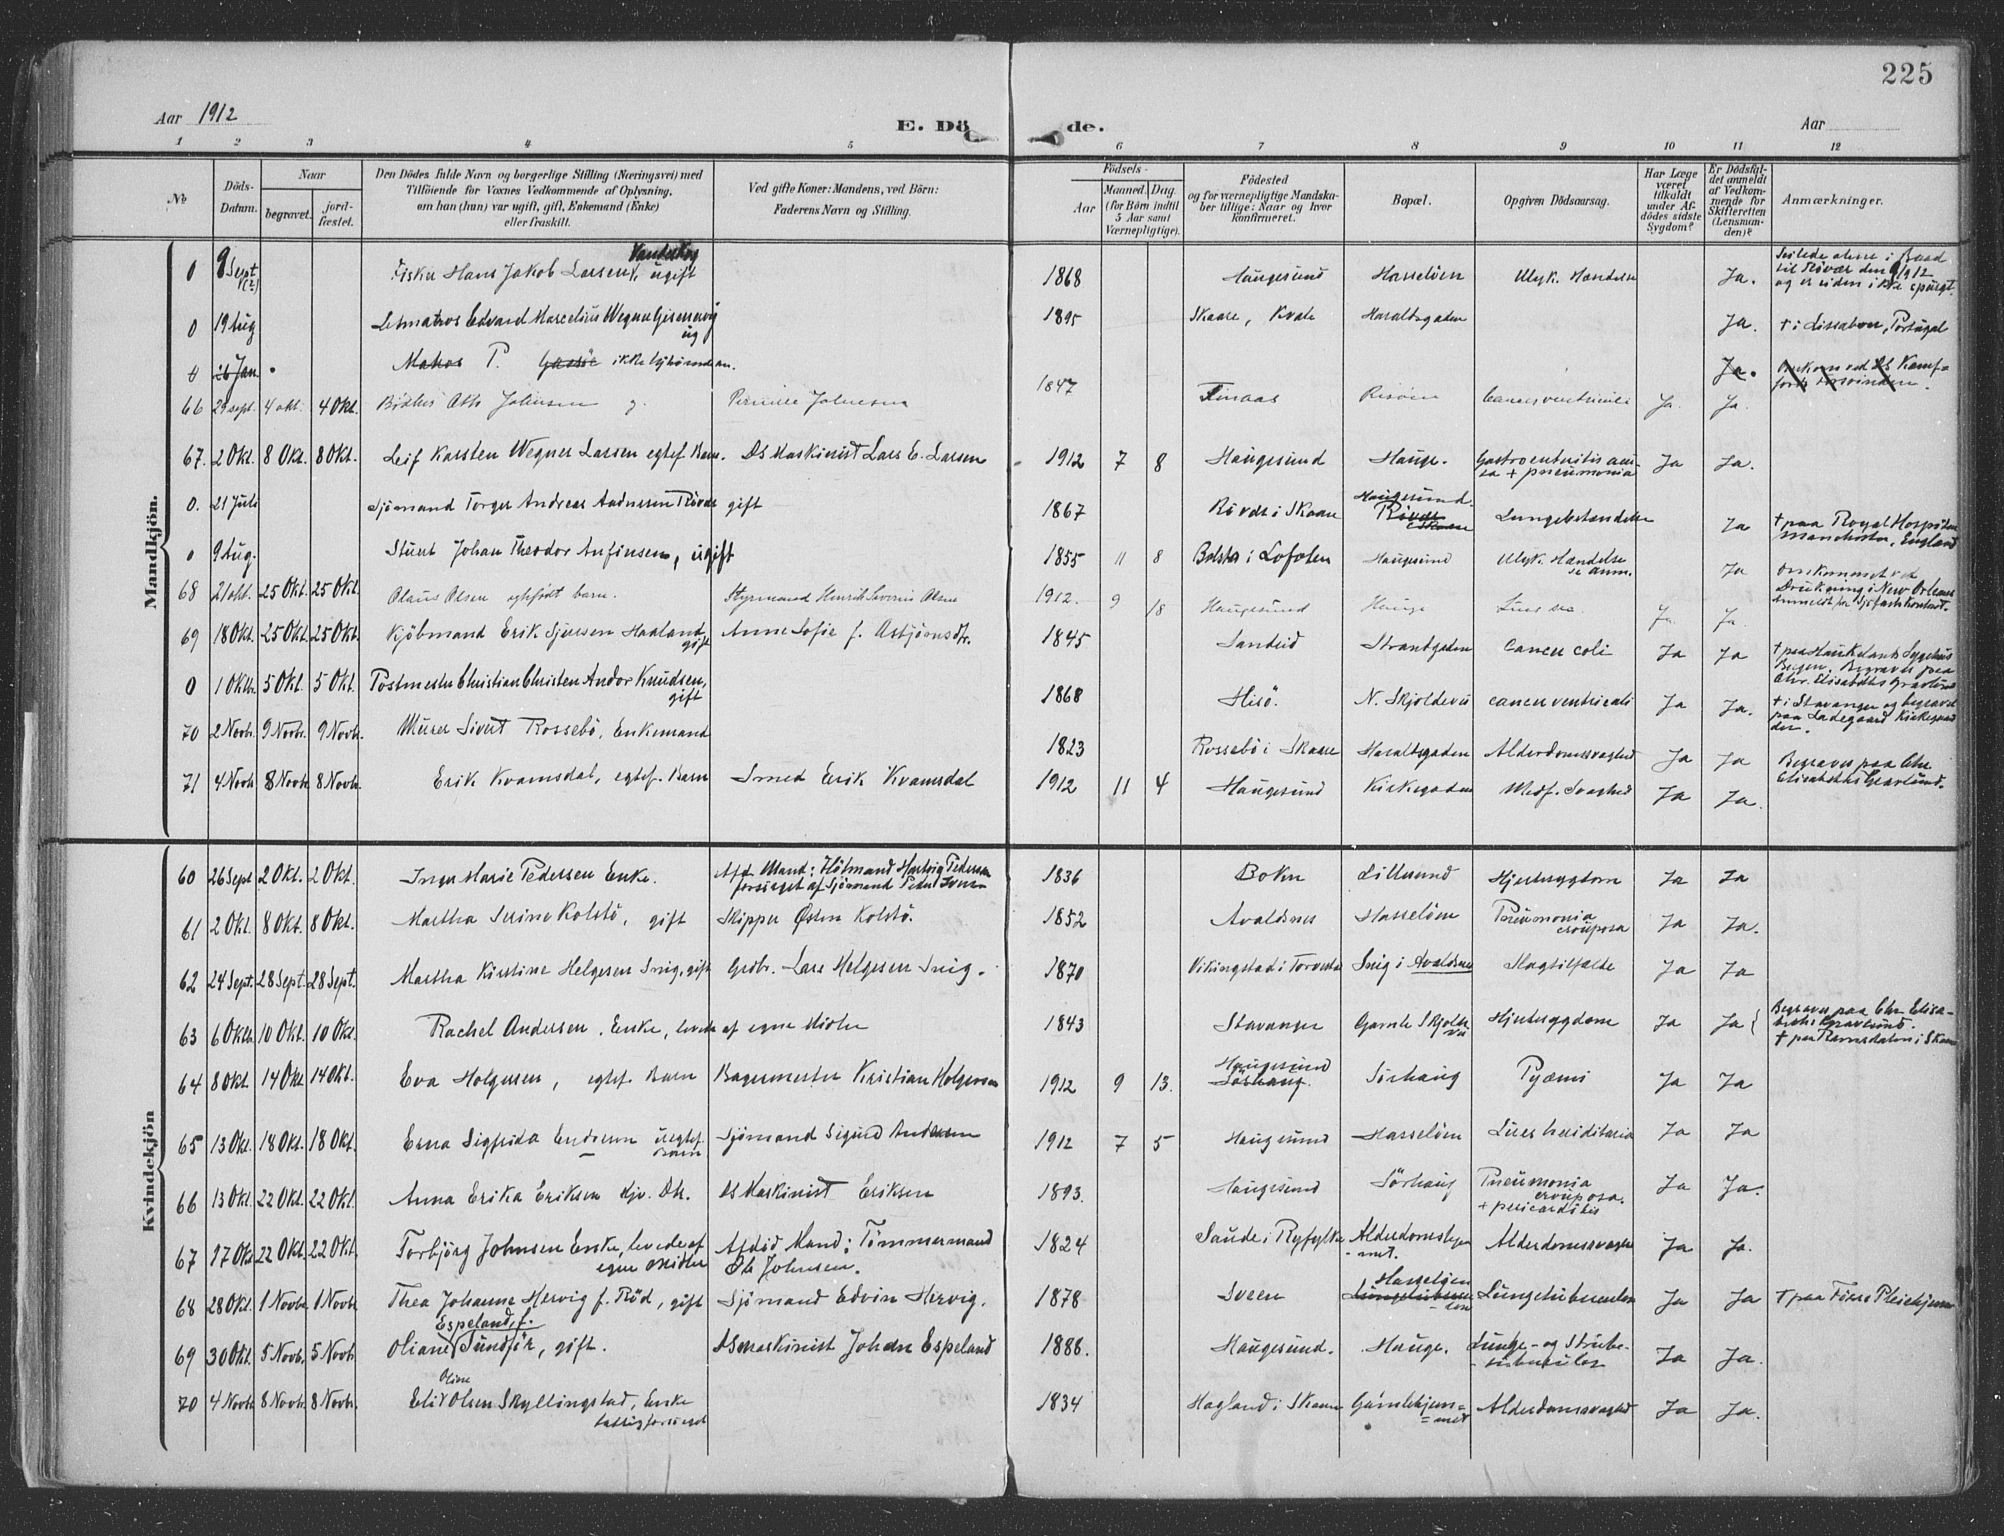 225
Aar 1912 E. Dö de. Aar
1 2 3 4 5 6 7 8 9 10 11 12
No
Döds-Datum.
Naar
begravet. jord-fæstet.
Den Dödes fulde Navn og borgerlige Stilling (Næringsvei) med
Tilföiende for Voxnes Vedkommende af Oplysning,
om han (hun) var ugift, gift, Enkemand (Enke)
eller fraskilt.
Ved gifte Koner: Mandens, ved Börn:
Faderens Navn og Stilling.
Födsels-
Aar Maaned. Dag.
(for Börn indtil
5 Aar samt
Værnepligtige).
Födested
og for værnepligtige Mandska-
ber tillige: Naar og hvor
konfirmeret.
Bopæl.
Opgiven Dödsaarsag.
Har Læge
været
tilkaldt
under Af-
dödes sidste
Sygdom?
Er Dödsfal-
det anmeldt
af Vedkom-
mende for
Skifteretten
(Lensman-
den)?
Anmærkninger.
Mandkjön.
0 9 Sept Fisker Hans Jakob Larsen, ugift 1868 Haugesund Hasseløen Ulyk. Hændelse Ja. Seilede alene i Baad
til Røvær den 9/9 1912
og er siden ikke spurgt.
0 19 Aug Letmatros Edvard Marcelius Wegner Gisenervig
ug 1895 Skaare, Kvale Haraldsgaden Ja. † i Lissabon, Portugal
0 26 Jan. Matros P. ikke Ja. Omkom ved DS
66 29 sept. 4 okt. 4 Okt. Bødker Johnsen g. Pernille Johnsen 1847 Finaas Risøen Cancer ventriculi Ja. Ja.
67. 2 Okt. 8 Okt. 8 Okt. Leif Karsten Wegner Larsen egtef Barn. DS Maskinist Lars E. Larsen 1912 7 8 Haugesund Hauge. Gastroenteritis acu-
ta + pneumonia Ja Ja.
0. 21 Juli Sjømand Torger Andreas Andersen Røvær gift 1867 Røvær i Skaare Haugesund
Røvær
Skaare Lungebetændelse Ja † paa Royal Hospital
Manchester, England
0 9 Aug. Stuert Johan Theodor Anfinsen, ugift 1855 11 8 Bolstar i Lofoten Haugesund Ulyk. Hændelse
se anm. Ja Omkommet ved
Drukning i New Orleans
Anmeldt for Sjøfartskontoret.
68 21 okt. 25 Okt. 25 Okt. Olaus Olsen egtefødt barn. Styrmand Henrik Severin Olsen 1912. 9 18 Haugesund Hauge Ja. Ja.
69 18 Okt. 25 Okt. 25 Okt. Kjøbmand Erik Sjursen Haaland
gift Anne Sofie f. Asbjørnsdtr. 1845 Sandeid Strandgaden Cancer coli Ja Ja † paa Haukelands Sygehus
Bergen. Begravet paa
Chr. Elisabeths Gravlund
0 1 Oktb. 5 Okt. 5 Okt. Postmester Christian Christen Andor Knudsen,
gift 1868 Hisø. N. Skjoldevei cancer ventriculi Ja Ja. † i Stavanger og begravet
paa Ladegaard Kirkegaar
den.
70 2 Novb. 9 Novb. 9 Novb. Murer Sivert Rossebø, Enkemand 1823 Rossebø i Skaare Haraldsgaden Alderdomssvaghed Ja Ja Begravet paa Chr.
Elisabeths Gravlund.
71 4 Novb 8 Novb 8 Novb. Erik Kvamsdal, egtef. Barn Smed Erik Kvamsdal 1912 11 4 Haugesund Kirkegaden Medf. Svaghed Ja Ja.
Kvindekjön
60 26 Sept 2 Okt. 2 Okt. Inger Marie Pedersen Enke. Afd. Mand: Hartvig Pedersen
forsørget af Sjømand Peder Iversen 1836 Bokn Lillesund Hjertesygdom Ja Ja
61 2 Okt. 8 Okt. 8 Okt. Martha Serine Kolstø, gift Skipper Østen Kolstø. 1852 Avaldsnes Hasseløen Pneumonia
crouposa Ja Ja.
62 24 Sept. 28 Sept. 28 Sept. Martha Kirstine Helgesen Snig, gift Grdbr. Lars Helgesen Snig. 1870 Vikingstad i Torvestad Snig i Avaldsnes Slagtilfælde Ja Ja
63 6 Oktb. 10 Okt. 10 Okt. Rachel Andersen, Enke, levede af egne Midler 1843 Stavanger Gamle Skjolde
vei Hjertesygdom Ja Ja Begravet paa Chr. Elisa-
beths Gravlund.
† paa Ramsdalen i Skaare
64 8 Okt. 14 Okt 14 Okt. Eva Holgersen, egtef. Barn Bagermester Kristian Holgersen 1912 9 13. Haugesund
Sørhaug. Sørhaug Pyæmi Ja Ja
65 13 Okt. 18 Okt. 18 Okt. Erna Sigfrida Andersen uegtef.
Barn Sjømand Sigurd Andersen 1912 7 5 Haugesund Hasseløen Lues hereditaria Ja Ja
66 13 Okt. 22 Okt. 22 Okt. Anna Erika Eriksen Hjv. Dtr. DS Maskinist Eriksen 1893. Haugesund Sørhaug Pneumonia
crouposa.
+ pericarditis Ja Ja.
67 17 Okt 22 Okt. 22 Okt. Torbjørg Johnsen Enke, levede af
egne Midler Afdød Mand: Tømmermand
Ole Johnsen. 1824 Saude i Ryfylke Alderdomshjem
-met. Alderdomssvaghed Ja Ja.
68 28 Okt. 1 Novb. 1 Novb Thea Johanne Hervig f. Rød, gift Sjømand Edvin Hervig. 1878 Sveen Hasseløen Lungetuberculose Ja Ja † paa Føres Pleiehjem
69 30 Okt. 5 Novb. 5 Novb. Espeland f.
Oliane Sundfør, gift. DS maskinist Johan Espeland 1888. Haugesund. Hauge. Lunge- og Strube-
-tuberculose Ja Ja.
70 4 Novb 8 Novb. 8 Novb. Oline
Eli Olsen Skyllingstad, Enke
fattigforsørget 1834 Hagland i Skaare Gamlehjem-
-met Alderdomssvaghed Ja Ja.